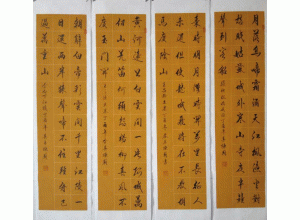 月落烏啼霜滿天江楓漁火對
愁眠姑蘇城外寒山寺夜半鐘
聲到客船
秦時明月漢時關萬里長征人
未還但使龍城飛將在不教胡
馬度陰山
黃河遠上白雲間一片孤城萬
仞山羌笛何須怨楊柳春風不
度玉門關
朝辭白帝彩雲間千里江陵一
日還兩岸猿聲啼不住輕舟已
過萬重山